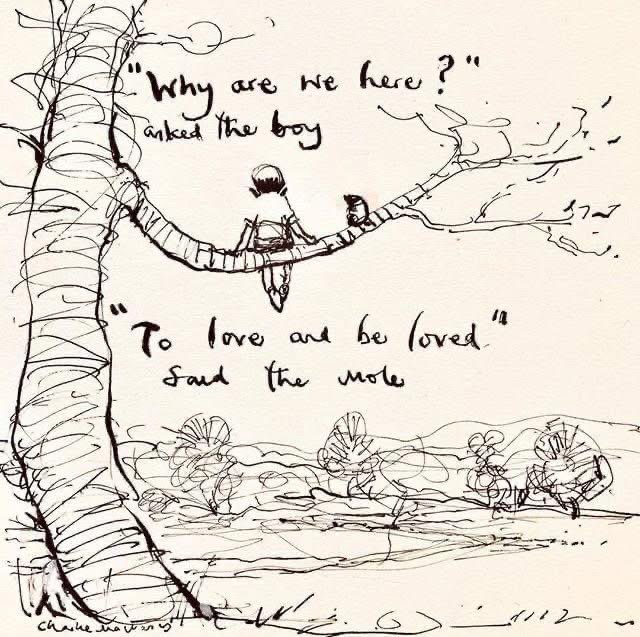 "Why are we here?"
asked the boy
"To love and be loved"
said the mole